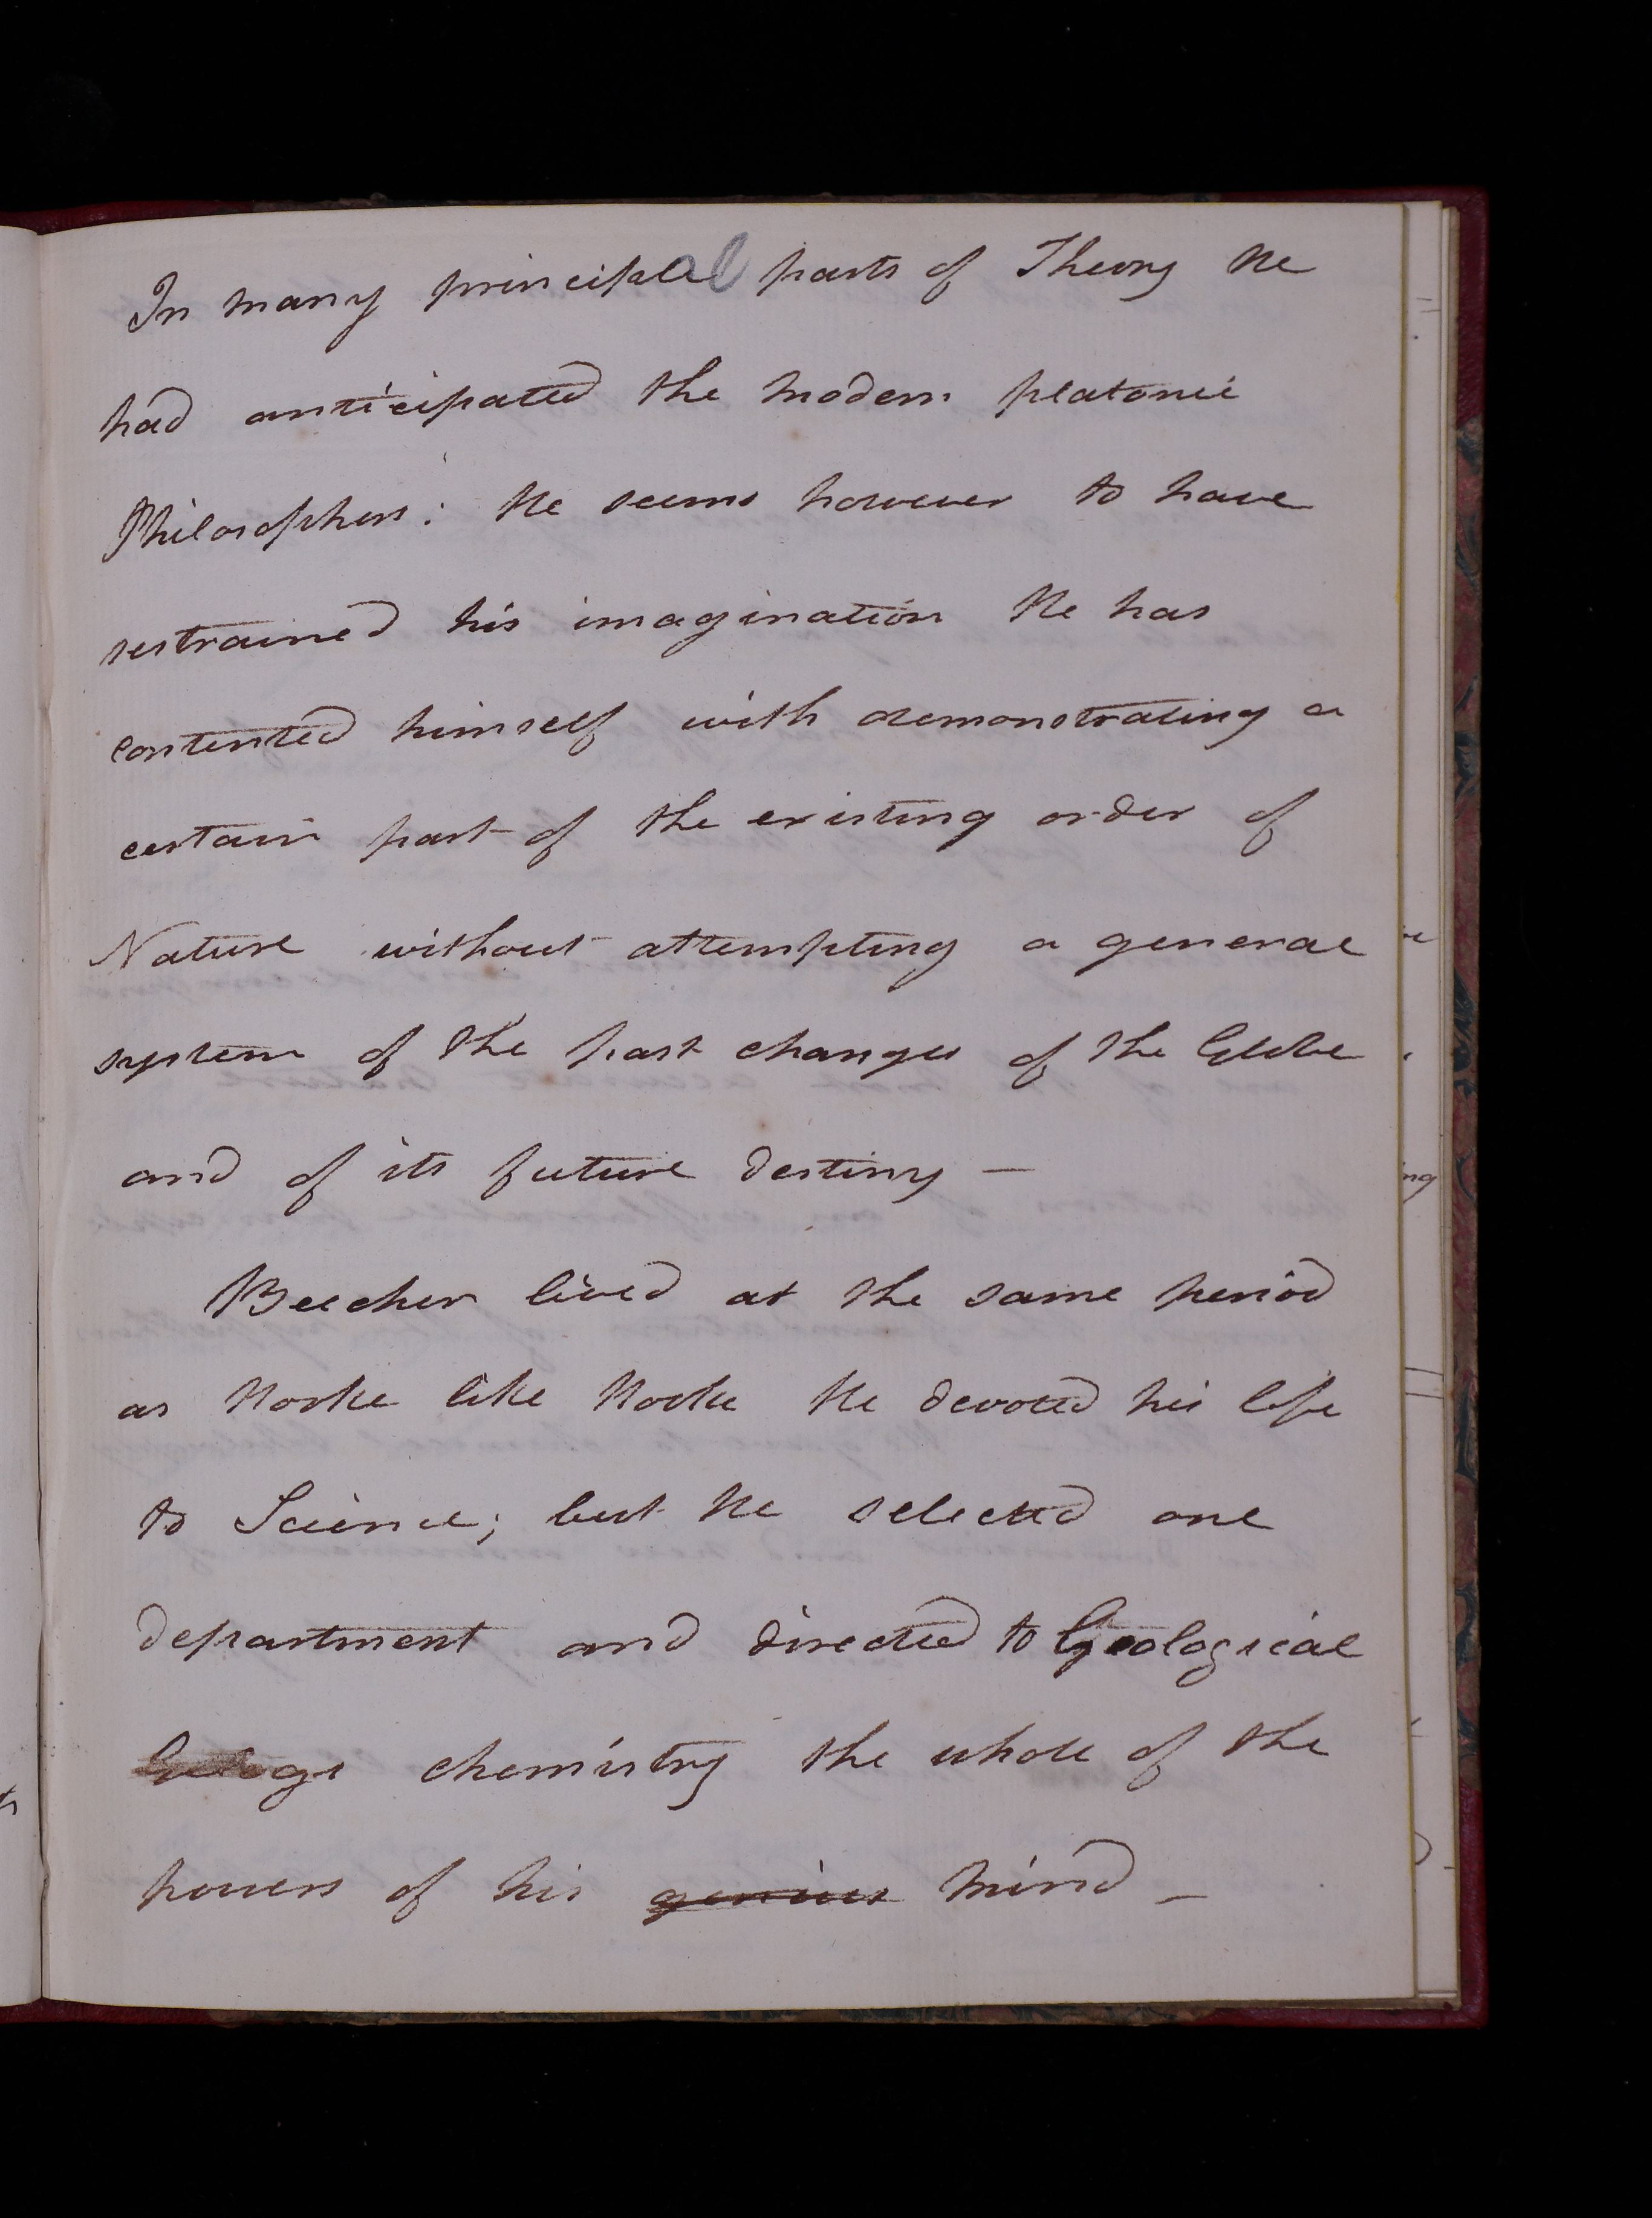 In many principal parts of Theory He
had anticipated the modern platonic
Philosophers: He seems however to have
restrained his imagination He has
contented himself with demonstrating a
certain part of the existing order of
Nature without attempting a general
system of the past changes of the Globe
and of its future destiny —
Beecher lived at the same period
as Hooke like Hooke He devoted his life
to Science; but He selected one
department and directed to Geological
chemistry the whole of the
powers of his genius mind —